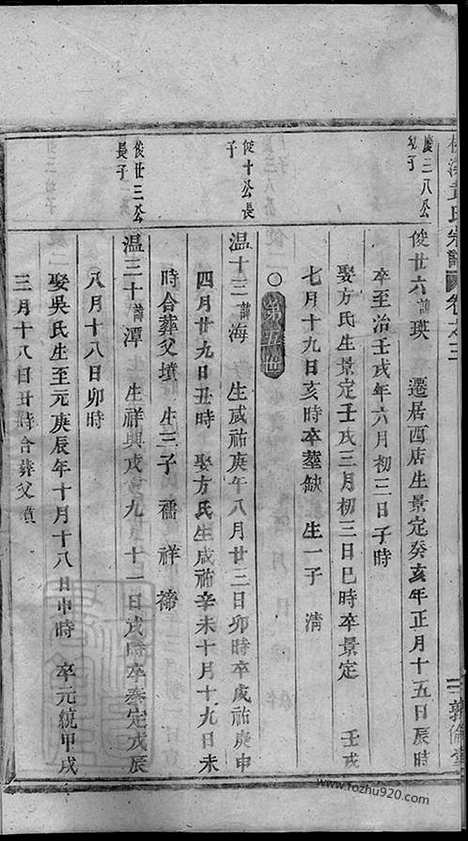 黃氏宗譜 卷之三
二 敦倫堂
慶三八公
幼子
俊廿六諱瑛 遷居西店生景定癸亥年正月十五日辰時
卒至治壬戌年六月初三日子時
娶方氏生景定壬戌三月初三日巳時卒景定 壬戌
七月十九日亥時卒塟缺 生一子 清
○ 第五世
俊十公長
子
温十三諱海 生咸祐庚午八月廿二日卯時卒咸祐庚申
四月廿九日丑時 娶方氏生咸祐辛未十月十九日未
時合葬父墳 生三子 禘
俊廿三公
長子
温三十諱潭 生祥興戊 九月十一日戌時卒泰定戊辰
八月十八日卯時
娶吳氏生至元庚辰年十月十八日申時 卒元統甲戌
三月十八日丑時合葬父墳
www.fozhu920.com